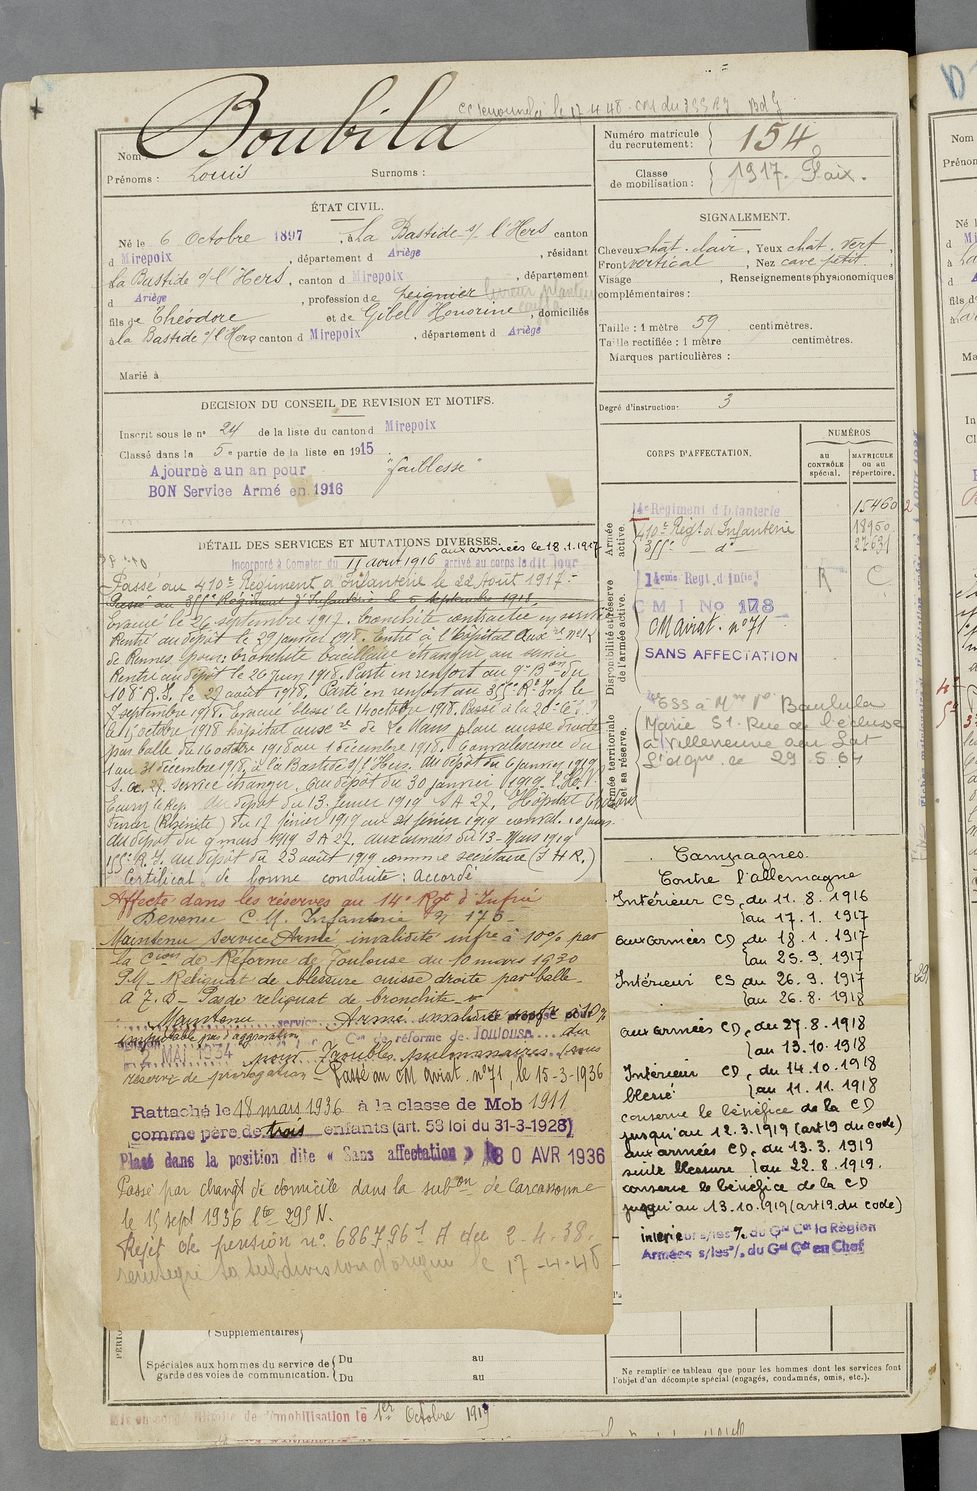 le 17 4 48
Boubila
Nom
Prénoms : Louis Surnoms :
Numéro matricule du recrutement : 154
Classe de mobilisation : 1917. Paix.
ÉTAT CIVIL.
Né le 6 Octobre 1897, à La Bastide s/ l'Hers canton
d Mirepoix, département d Ariège, résidant
La Bastide s/ l'Hers, canton d Mirepoix, département
d Ariège, profession de peignier
fils de Théodore et de Gibel Honorine, domiciliés
à La Bastide s/ l'Hers canton d Mirepoix, département d Ariège
Marié à
SIGNALEMENT.
Cheveux chat. clair, Yeux chat. vert,
Front vertical, Nez cave petit,
Visage , Renseignements physionomiques
complémentaires :
Taille : 1 mètre 59 centimètres.
Taille rectifiée : 1 mètre centimètres.
Marques particulières :
Degré d'instruction : 3
DECISION DU CONSEIL DE REVISION ET MOTIFS.
Inscrit sous le n° 24 de la liste du canton d Mirepoix
Classé dans la 5e partie de la liste en 1915
Ajourné a un an pour "faiblesse"
BON Service Armé en 1916
CORPS D'AFFECTATION.
NUMÉROS
AU CONTRÔLE spécial.
MATRICULE ou au répertoire.
Armée active.
14e Regiment d'Infanterie 15460
410e Regt d'Infanterie 18950
355e — d° — 27631
Disponibilité et réserve de l'armée active.
14eme Regt. d'Infie R C
C M I No 178
OM aviat. n° 71
SANS AFFECTATION
Armée territoriale et sa réserve.
Marie 51. Rue de l'écluse
à Villeneuve sur Lot
le 29.5.64
DÉTAIL DES SERVICES ET MUTATIONS DIVERSES.
aux armées le 18.1.1917
Incorporé à Compter du 11 août 1916 arrivé au corps le dit jour
Passé au 410e Régiment d'Infanterie le 22 Août 1917.-
Passé au 355e Régiment d'Infanterie le 5 septembre 1918
Evacué le 26 septembre 1917. bronchite contractée en service
Rentré au dépôt le 29 janvier 1918. Entré à l'hôpital Aux re n°1
de Rennes pour : bronchite bacillaire étranger au service
Rentré au dépôt le 26 juin 1918. Parti en renfort au 9e Bon du
108e R.I. le 27 août 1918. Parti en renfort au 355e Rt Inf le
7 septembre 1918. Evacué blessé le 14 octobre 1918. Passé à la
le 15 octobre 1918 hôpital auxre de Le Mans plaie cuisse droite
par balle du 16 octobre 1918 au 1 décembre 1918. Convalescence du
1 au 31 décembre 1918, à La Bastide s/ l'Hers. au dépôt du 6 janvier 1919
S.A. 27. service étranger. au dépôt du 30 janvier 1919.
au dépôt du 13. février 1919 S A 27. Hôpital
Février du 17 février 1919 aux 21 février 1919 conval. 10 jours
au dépôt du 9 mars 1919 S A 27. aux armées du 13 Mars 1919
au dépôt du 23 août 1919 comme secrétaire
Certificat de bonne conduite : Accordé
Affecté dans les réserves au 14e Rgt d'Infrie
Devenu C.M. Infanterie n° 178 -
Maintenu Service Armé invalidité infre à 10% par
la Cion de Réforme de Toulouse du 10 mars 1930
P.M - Reliquat de blessure cuisse droite par balle
A.F.D - Pas de reliquat de bronchite
Maintenu service Armé invalidité
Con de réforme de Toulouse du
2 MAI 1934 pour Troubles pulmonaires sous
réserve de prorogation - Passé au OM aviat. n° 71, le 15-3-1936
Rattaché le 18 mars 1936 à la classe de Mob 1911
comme père de trois enfants (art. 58 loi du 31-3-1928)
Placé dans la position dite « Sans affectation » 30 AVR 1936
Passé par changt de domicile dans la subon de Carcassonne
le 15 sept 1936 lte 295 N.
Rejet de pension n° 686796 1 A du 2-4-38.
reintegré la subdivision d'origine le 17-4-48
Campagnes.
Contre l'allemagne
Intérieur CS, du 11.8.1916
au 17.1.1917
aux armées CD, du 18.1.1917
au 25.9.1917
Intérieur CS au 26.9.1917
au 26.8.1918
aux armées CD, du 27.8.1918
au 13.10.1918
Intérieur CD, du 14.10.1918
blessé au 11.11.1918
conserve le bénéfice de la CD
jusqu'au 12.3.1919 (art 19 du code)
aux armées CD, du 13.3.1919
suite blessure au 22.8.1919.
conserve le bénéfice de la CD
jusqu'au 13.10.1919 (art 19. du code)
interieur s/les % du Gal Ct la Région
Armées s/les % du Gal Ct en Chef
(Supplémentaires)
Spéciales aux hommes du service de garde des voies de communication.
Du au
Du au
Ne remplir ce tableau que pour les hommes dont les services font
l'objet d'un décompte spécial (engagés, condamnés, omis, etc.).
Mis en congé illimité de démobilisation le 1er Octobre 1919